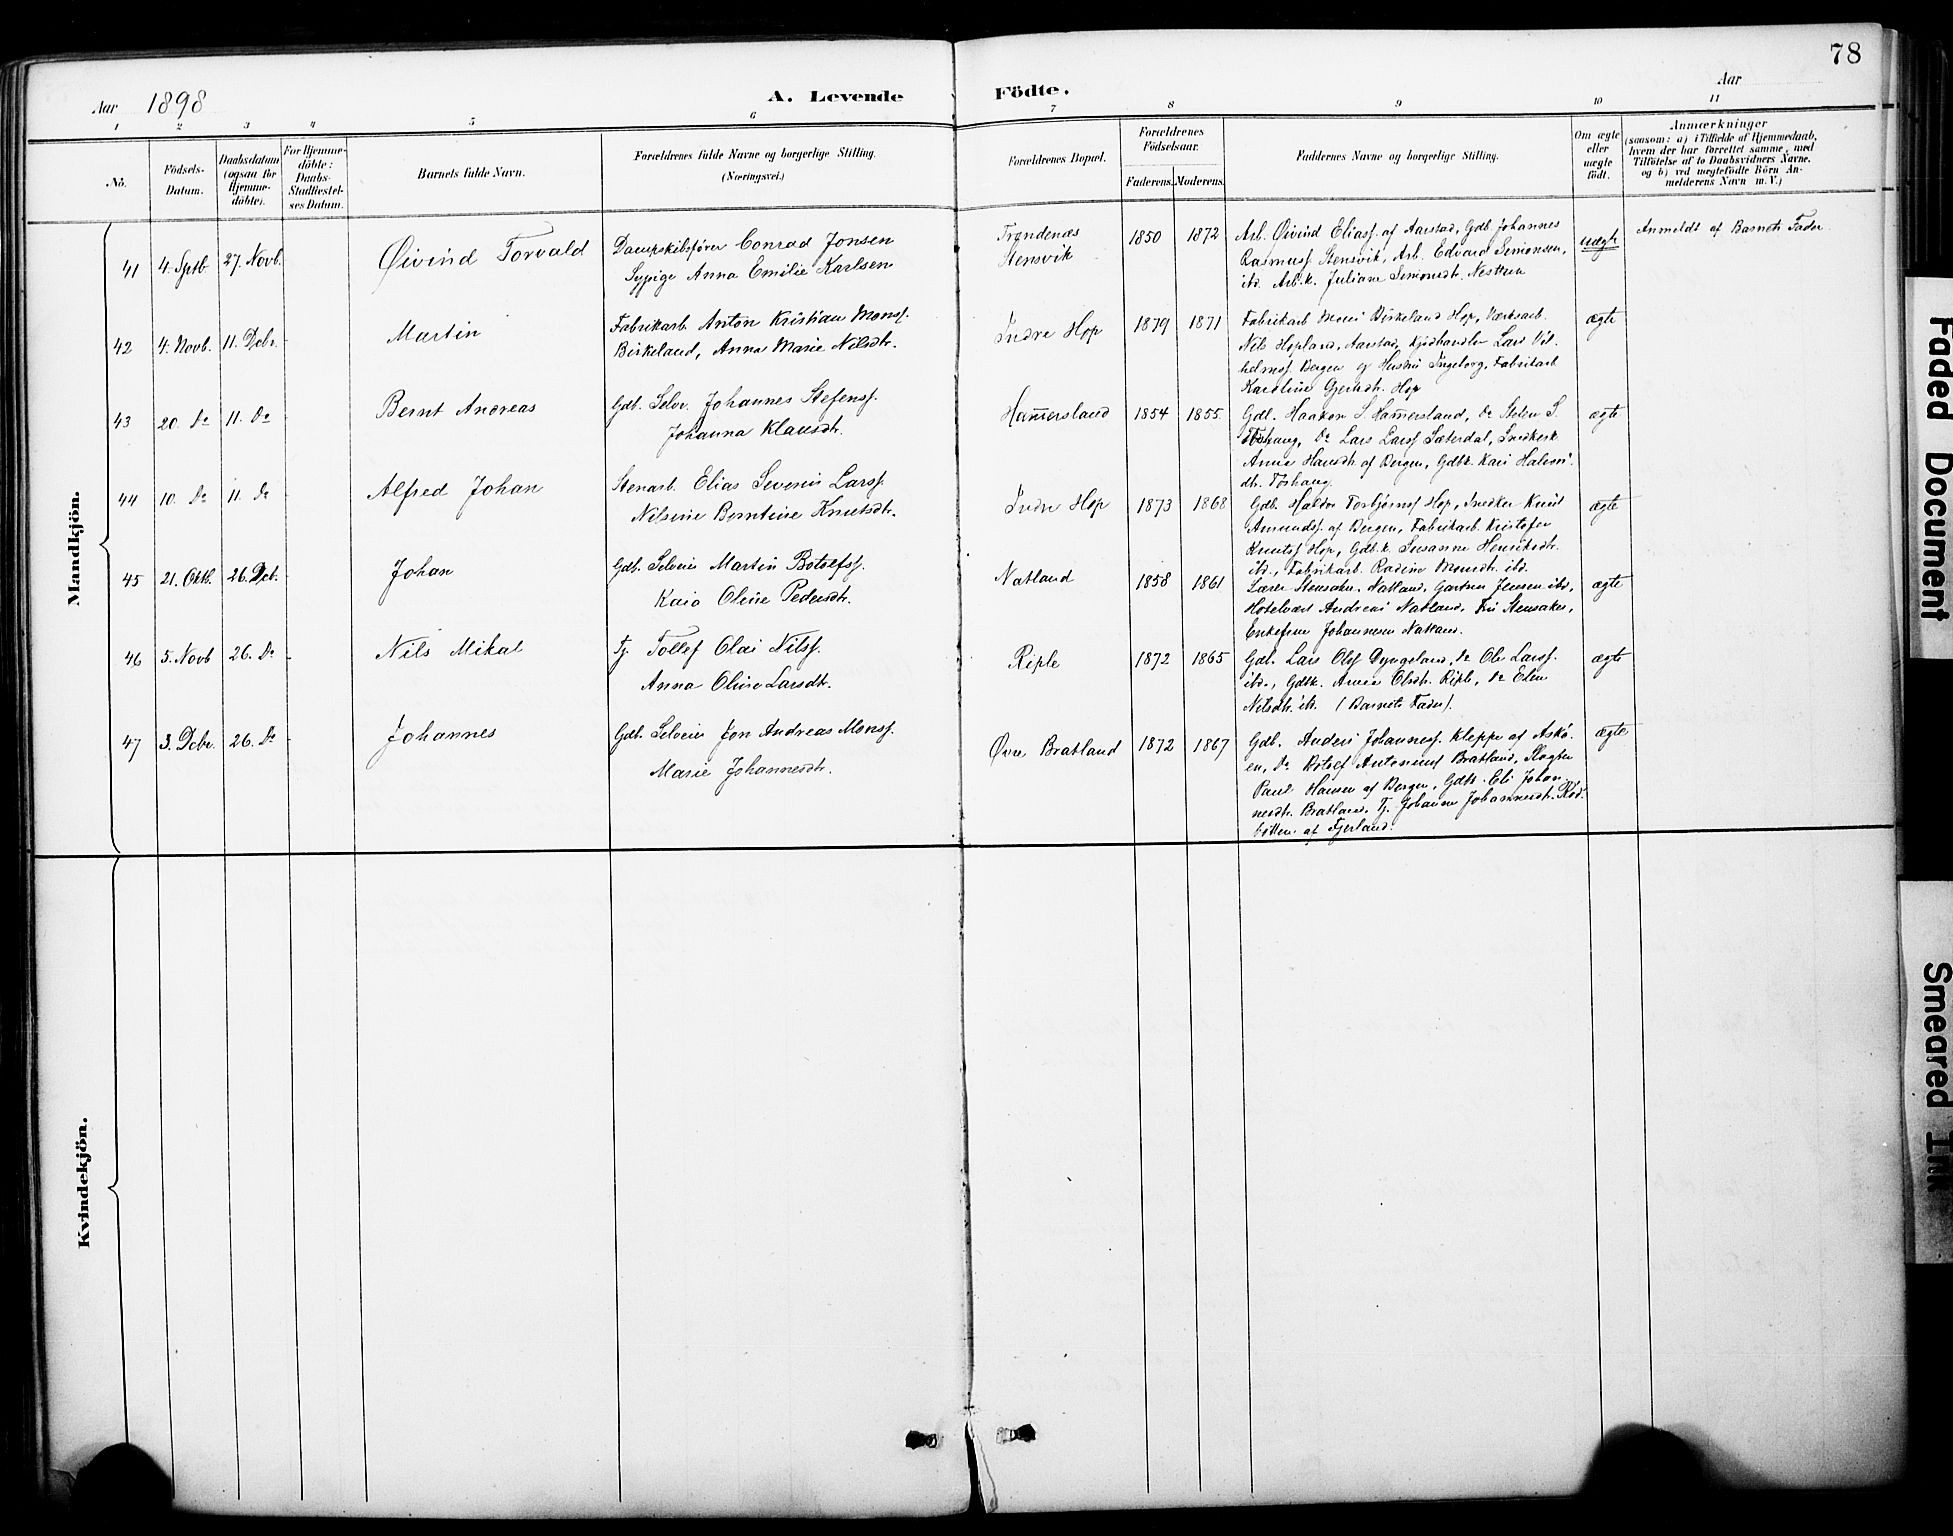 78
Aar 1898
A. Levende
Födte.
Aar
1 2 3 4 5 6 7 8 9 10 11
No.
Födsels-
Datum.
Daabsdatum
(ogsaa for
Hjemme-
döbte).
For Hjemme-
döbte:
Daabs-
Stadfæstel-
ses Datum.
Barnets fulde Navn.
Forældrenes fulde Navne og borgerlige Stilling.
(Næringsvei.)
Forældrenes Bopæl.
Forældrenes
Födselsaar.
Faderens. Moderens.
Faddernes Navne og borgerlige Stilling.
Om ægte
eller
uægte
födt.
Anmærkninger
(saasom: a) i Tilfælde af Hjemmedaab,
hvem der har forrettet samme, med
Tilföielse af to Daabsvidners Navne,
og b) ved uægtefödte Börn An-
melderens Navn m. V.)
Mandkjön.
41 4. Sptb. 27. Novb. Øivind Torvald
Dampskibsfører Conrad Jonsen
Sypige Anna Emilie Karlsen
Trondenæs
Stensvik
1850 1872
Arb. Øivind Eliass. af Aarstad, Gdb. Johannes
Rasmuss. Stensvik, Arb. Edvard Simonsen,
ibd. Arb.k. Juliane Simonsdt. Nesttun
uægte
Anmeldt af Barnets Fader
42 4. Novb. 11. Debr. - Martin
Fabrikarb. Anton Kristian Monss.
Birkeland, Anna Marie Nilsdtr.
Indre Hop
1879 1871
Fabrikarb. Mons Birkeland Hop, Værksarb.
Nils Hopland, Aarstad, Kjødhandler Lars Vil-
helmss. Bergen og Hustru Ingeborg, Fabrikarb
Karoline Gjertsdt. Hop
ægte
43 20. Do 11. Do - Bernt Andreas
Gdb. Selv. Johannes Stefenss.
Johanna Klausdt.
Ham̅ersland
1854 1855
Gdb. Haakon S. Ham̅ersland, Do Stefen S.
Toshaug, Do Lars Larss. Sæterdal, Snedkerk.
Anna Hansdt. af Bergen, Gdbk. Kari Halvors-
dt. Toshaug.
ægte
44 10. Do 11. Do - Alfred Johan
Stenarb. Elias Severin Larss.
Nilsine Berntine Knutsdt.
Indre Hop
1873 1868
Gdb. Haldor Torbjørnss. Hop, Snedker Knud
Amundss. af Bergen, Fabrikarb. Kristofer
Knutss. Hop, Gdb.k. Susanne Henriksdt.
ibd., Fabrikarb. Rasine Monsdt. ibd.
ægte
45 21. Oktb. 26. Deb. - Johan
Gdb. Selveier Martin Botolfss.
Kaia Oline Pedersdt.
Natland
1858 1861
Lærer Stensaker, Natland, Gartner Jensen ibd,
Hotelvært Andreas Natland, Fru Stensaker,
Enkefrue Johannesen Natland.
ægte
46 5. Novb 26. Do - Nils Mikal
Tj. Tollef Olai Nilss.
Anna Oline Larsdt.
Riple
1872 1865
Gdb. Lars Olss. Dyngeland, Do Ole Larss.
ibd., Gdbk. Anna Olsdt. Riple, Do Elen
Nilsdt. ibd. (Barnets Fader).
ægte
47 3. Debr. 26. Do - Johannes
Gdb. Selveier Jon Andreas Monss.
Marie Johannesdt.
Øvre Bratland
1872 1867
Gdb. Anders Johanness. Kleppe af Askø-
en, Do Botolf Antoniuss Bratland, Slagter
Paul Hansen af Bergen, Gdbk. Eli Johan-
nesdt. Bratland, Tj. Johanne Johannesdt. Rød-
botten af Fjerland.
ægte
Kvindekjön.
Faded Document
Smeared Ink